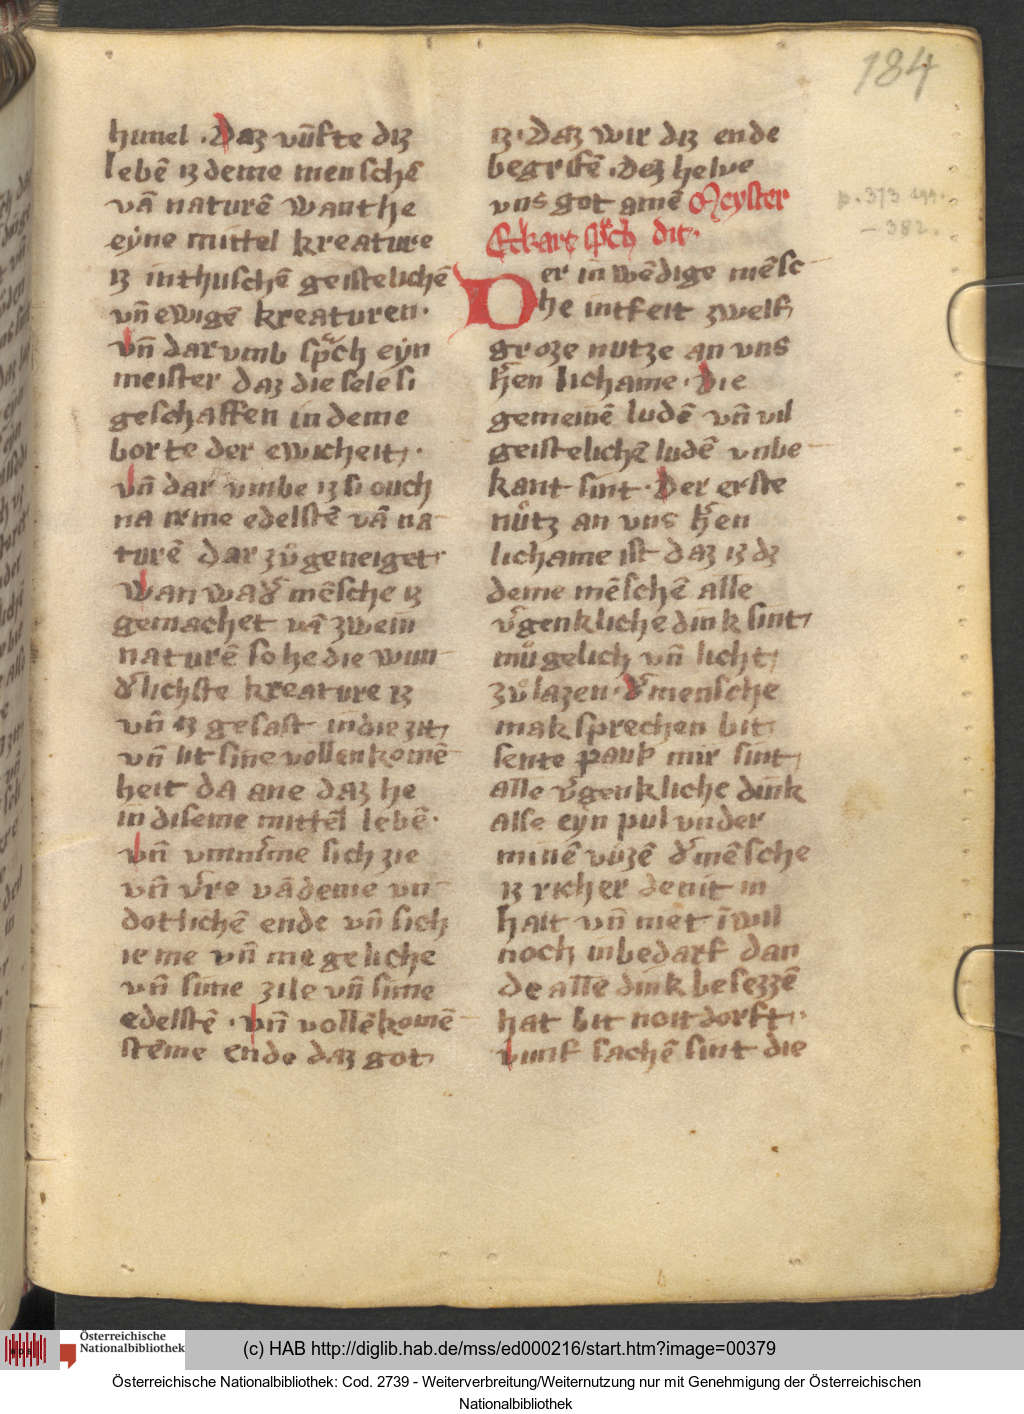 184
himel · Daz vūfte diz
lebē iz deme menschē
vā naturē wanthe
eyne mittel kreature
iz inthuschē geistelichē
vn̄ ewigē kreaturen·
vn̄ dar vmb sp̄ch eyn
meister daz die sele si
geschaffen in deme
borte der ewicheit·
vn̄ dar vmbe iz si ouch
na irme edelstē vā na
turē dar zůgeneiget·
wan wa d' mēsche iz
gemachet vā zwein
naturē so he die wun
d'lichste kreature iz
vn̄ iz gesast in die zit
vn̄ lit sine vollenkomē
heit da ane daz he
in diseme mittel lebē·
vn̄ vmm'me sich zie
vn̄ v're vā deme vn
dotlichē ende vn̄ sich
ieme vn̄ me geliche
vn̄ sime zile vn̄ sime
edelstē · vn̄ vollēkomē
steme ende daz got
iz · Daz wir diz ende
begrifē · dez helve
vns got amē Meyster
Eckart sp̄ch dit·
Der inwēdige mēsc
he intfeit zwelf
groze nutze an vns
h'en lichame · die
gemeinē ludē vn̄ vil
geistelichē ludē vnbe
kant sint · Der erste
nůtz an vns h'en
lichame ist daz iz dz
deme mēschē alle
v'genkliche dink sint
můgelich vn̄ licht
zůlazen · d' mensche
mak sprechen bit
sente paulꝰ mir sint
alle v'genkliche dink
alse eyn pul vnder
minē vůzē d' mēsche
iz richer de nit in
hait vn̄ niet ī wil
noch inbedarf dan
de alle dink besezzē
hat bit noitdorft·
vunf sachē sint die
p. 373
– 382.
Österreichische
Nationalbibliothek
(c) HAB http://diglib.hab.de/mss/ed000216/start.htm?image=00379
Österreichische Nationalbibliothek: Cod. 2739 - Weiterverbreitung/Weiternutzung nur mit Genehmigung der Österreichischen
Nationalbibliothek